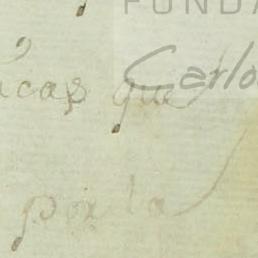 FUNDA
Carlo
icas que
por la